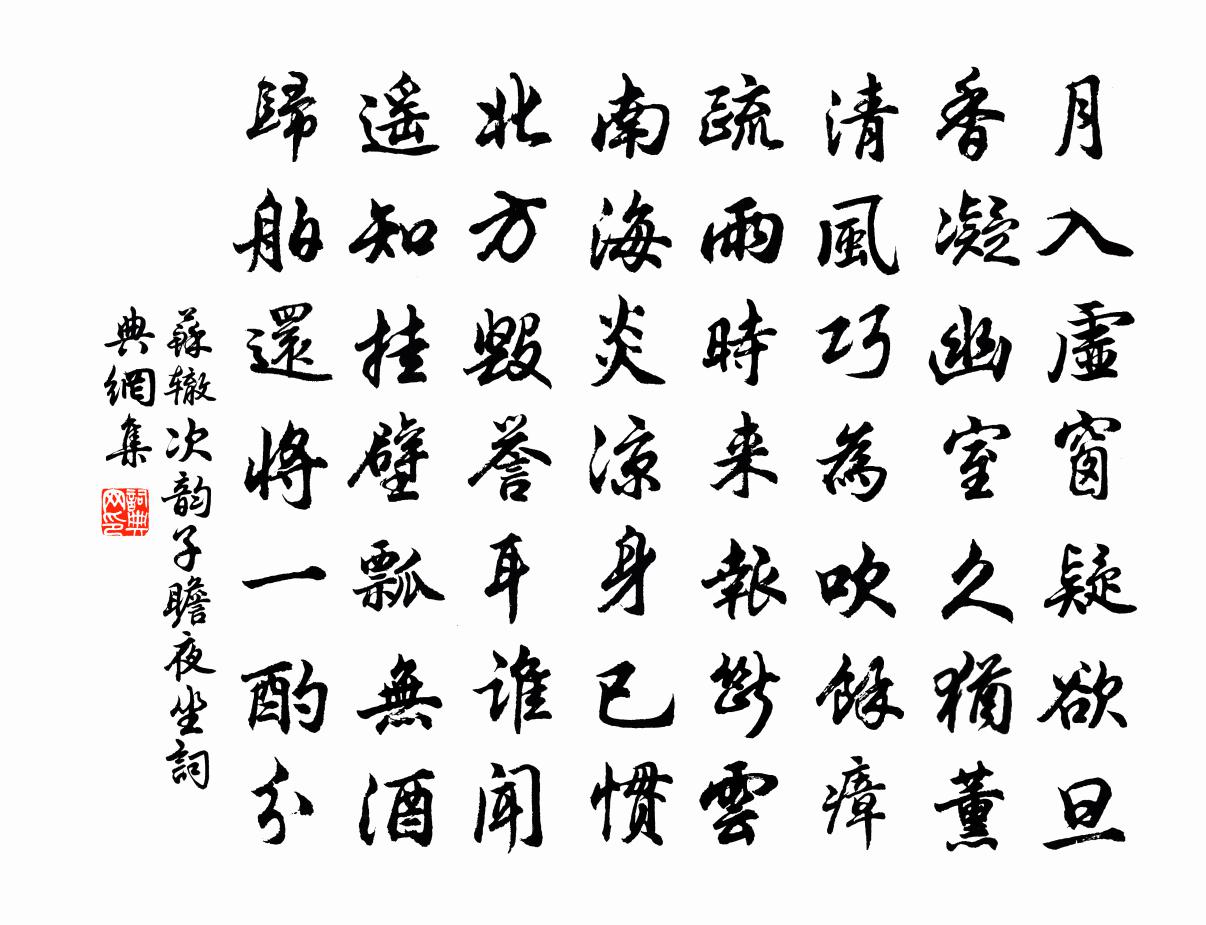 月入虛窗疑欲旦
香凝幽室久猶薰
清風巧為吹餘瘴
疏雨時来報斷雲
南海炎涼身已慣
北方毀譽耳誰聞
遥知挂壁瓢無酒
歸舶還將一酌分
蘇辙次韵子瞻夜坐詞
典網集
詞典
网印